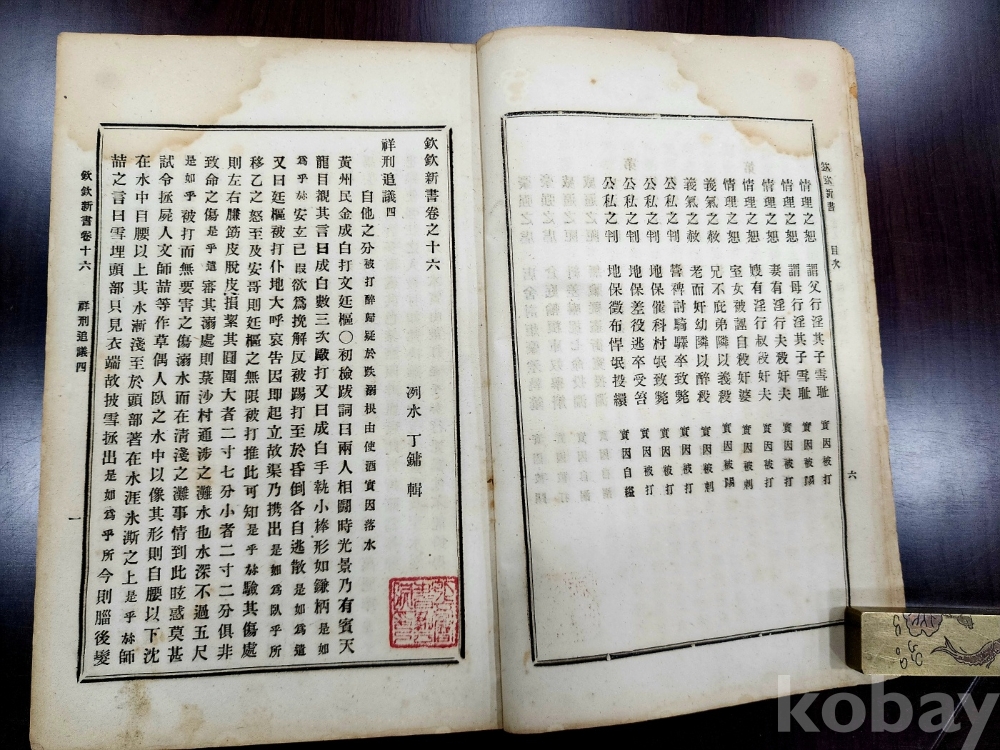 欽欽新書
目次
情理之恕 謂父行淫其子雪耻 實因被打
情理之恕 謂母行淫其子雪耻 實因被踢
情理之恕 妻有淫行夫殺奸夫 實因被打
情理之恕 嫂有淫行叔殺奸夫 實因被刺
情理之恕 室女被誣自殺奸婆 實因被刺
義氣之赦 兄不庇弟隣以義殺 實因被踢
義氣之赦 老而奸幼隣以醉殺 實因被打
公私之判 督稗討騎驛卒致斃 實因被打
公私之判 地保催科村氓致斃 實因被打
公私之判 地保差役逃卒受笞 實因被打
公私之判 地保徵布悍氓投繯 實因自縊
六
欽欽新書卷之十六
洌水 丁鏞 輯
祥刑追議四
自他之分 被打醉歸疑於跌溺 根由使酒 實因落水
黃州民金成白打文廷樞〇初檢跋詞曰兩人相鬪時光景乃有賓天
龍目覩其言曰成白數三次敺打又曰成白手執小棒形如鎌柄是如
爲乎㫆安玄已叚欲爲挽解反被踢打至於昏倒各自逃散是如爲遣
又曰廷樞被打仆地大呼哀告因即起立故渠乃携出是如爲臥乎所
移乙之怒至及安哥則廷樞之無限被打推此可知是乎㫆驗其傷處
則左右臁筋皮脫皮損絜其圓圍大者二寸七分小者二寸二分俱非
致命之傷是乎遣審其溺處則葉沙村通涉之灘水也水深不過五尺
是如乎被打而無要害之傷溺水而在淸淺之灘事情到此眩惑莫甚
試令拯屍人文師喆等作草偶人臥之水中以像其形則自腰以下沈
在水中自腰以上其水漸淺至於頭部著在水涯氷澌之上是乎㫆師
喆之言曰雪埋頭部只見衣端故披雪拯出是如爲乎所今則腦後髮
欽欽新書卷十六
祥刑追議四
一
kobay